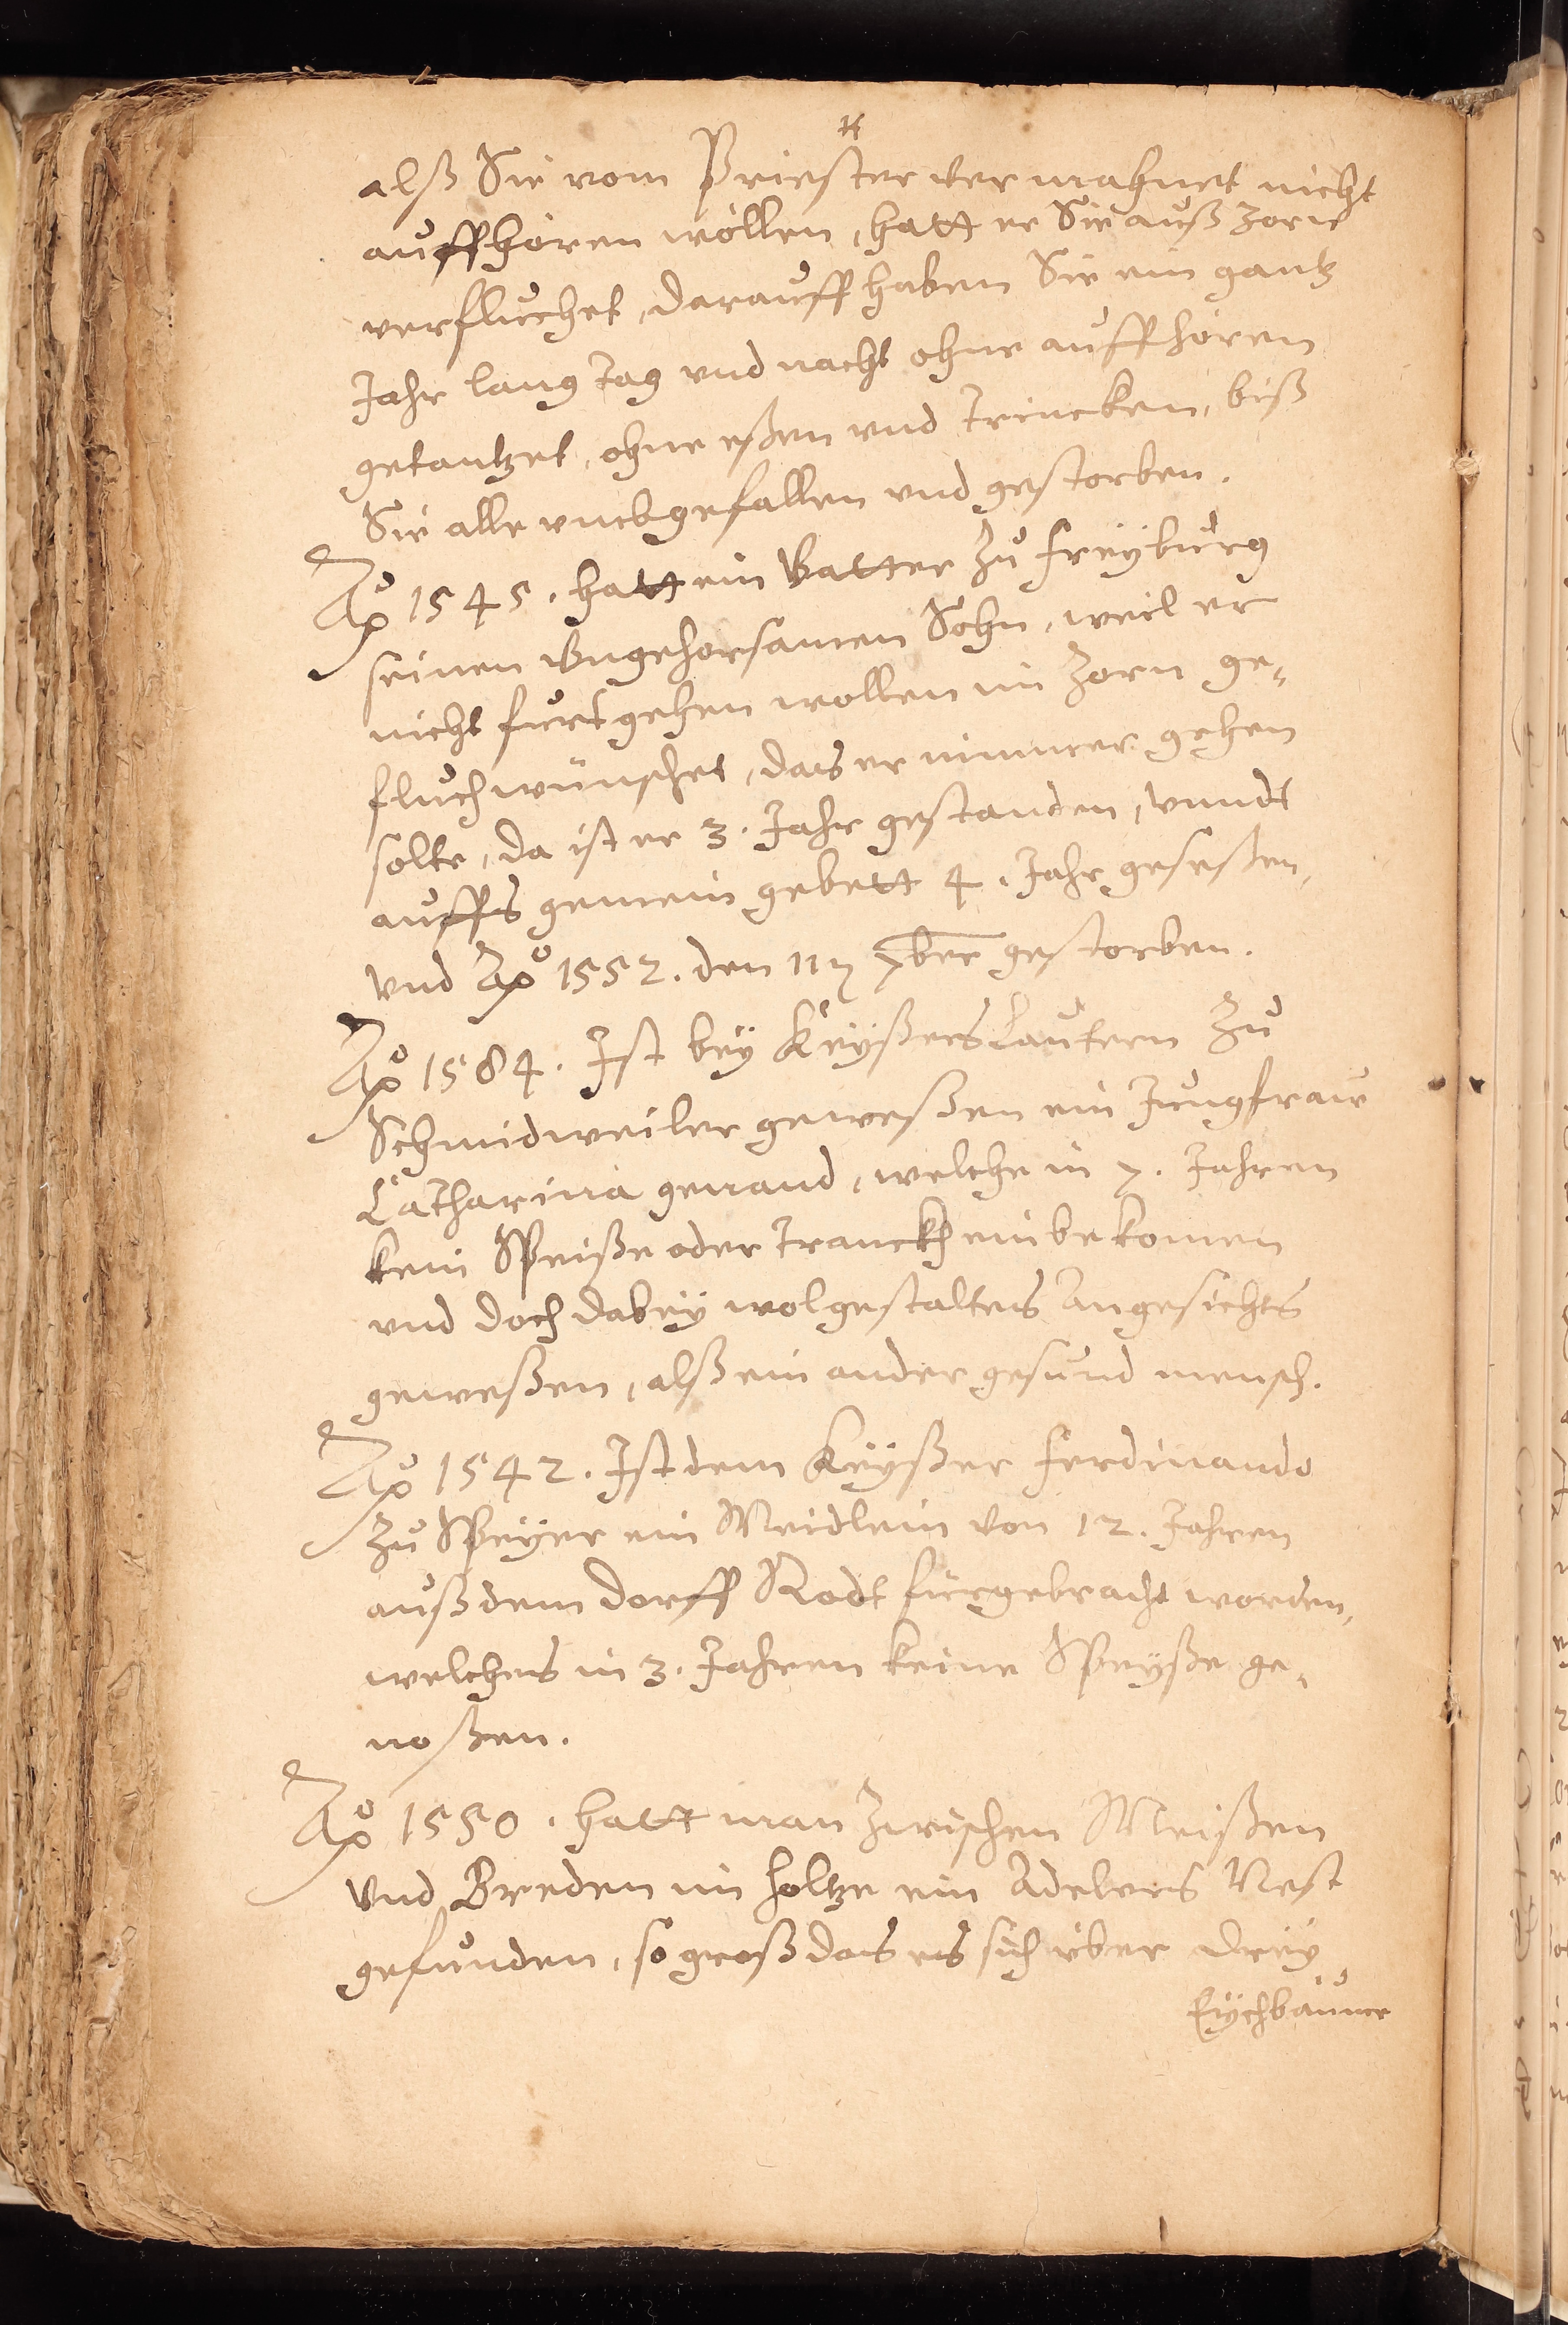 alß Sie vom Priester vermahnet nicht
auffhören wöllen, hatt er Sie auß zorn
verfluchet, darauff haben Sie ein gantz
Jahr lang tag vnd nacht ohne auffhören
getantzet, ohne eßen vnd trincken, biß
Sie alle vmbgefallen vnd gestorben.
Ao 1545. hatt ein Vatter zu Freyburg
seinen Vngehorsamen Sohn, weil er
nicht furt gehen wollen im Zorn ge-
fluchwünschet, das er nimmer gehen
solte, da ist er 3. Jahr gestanden, vnndt
auffs gemein gebett 4. Jahr geseßen,
vnd Ao 1552. den 11 7ber gestorben.
Ao 1584. Ist bey Keyßers Lautern zu
Schmidweiler geweßen ein Jungfraw
Catharina genand, welche in 7. Jahren
kein Speiße oder tranckh einbekomen
vnd doch dabey wolgestaltes Angesichts
geweßen, alß ein ander gesund mensch.
Ao 1542. Ist dem Keyßer Ferdinando
zu Speyer ein Meidlein von 12. Jahren
auß dem dorff Rodt fürgebracht worden,
welches in 3. Jahren keine Speyße ge-
noßen.
Ao 1550. hatt man zwischen Meißen
vnd Breden im holtze ein Adelers Nest
gefunden, so groß das es sich über drey
Eychbäume